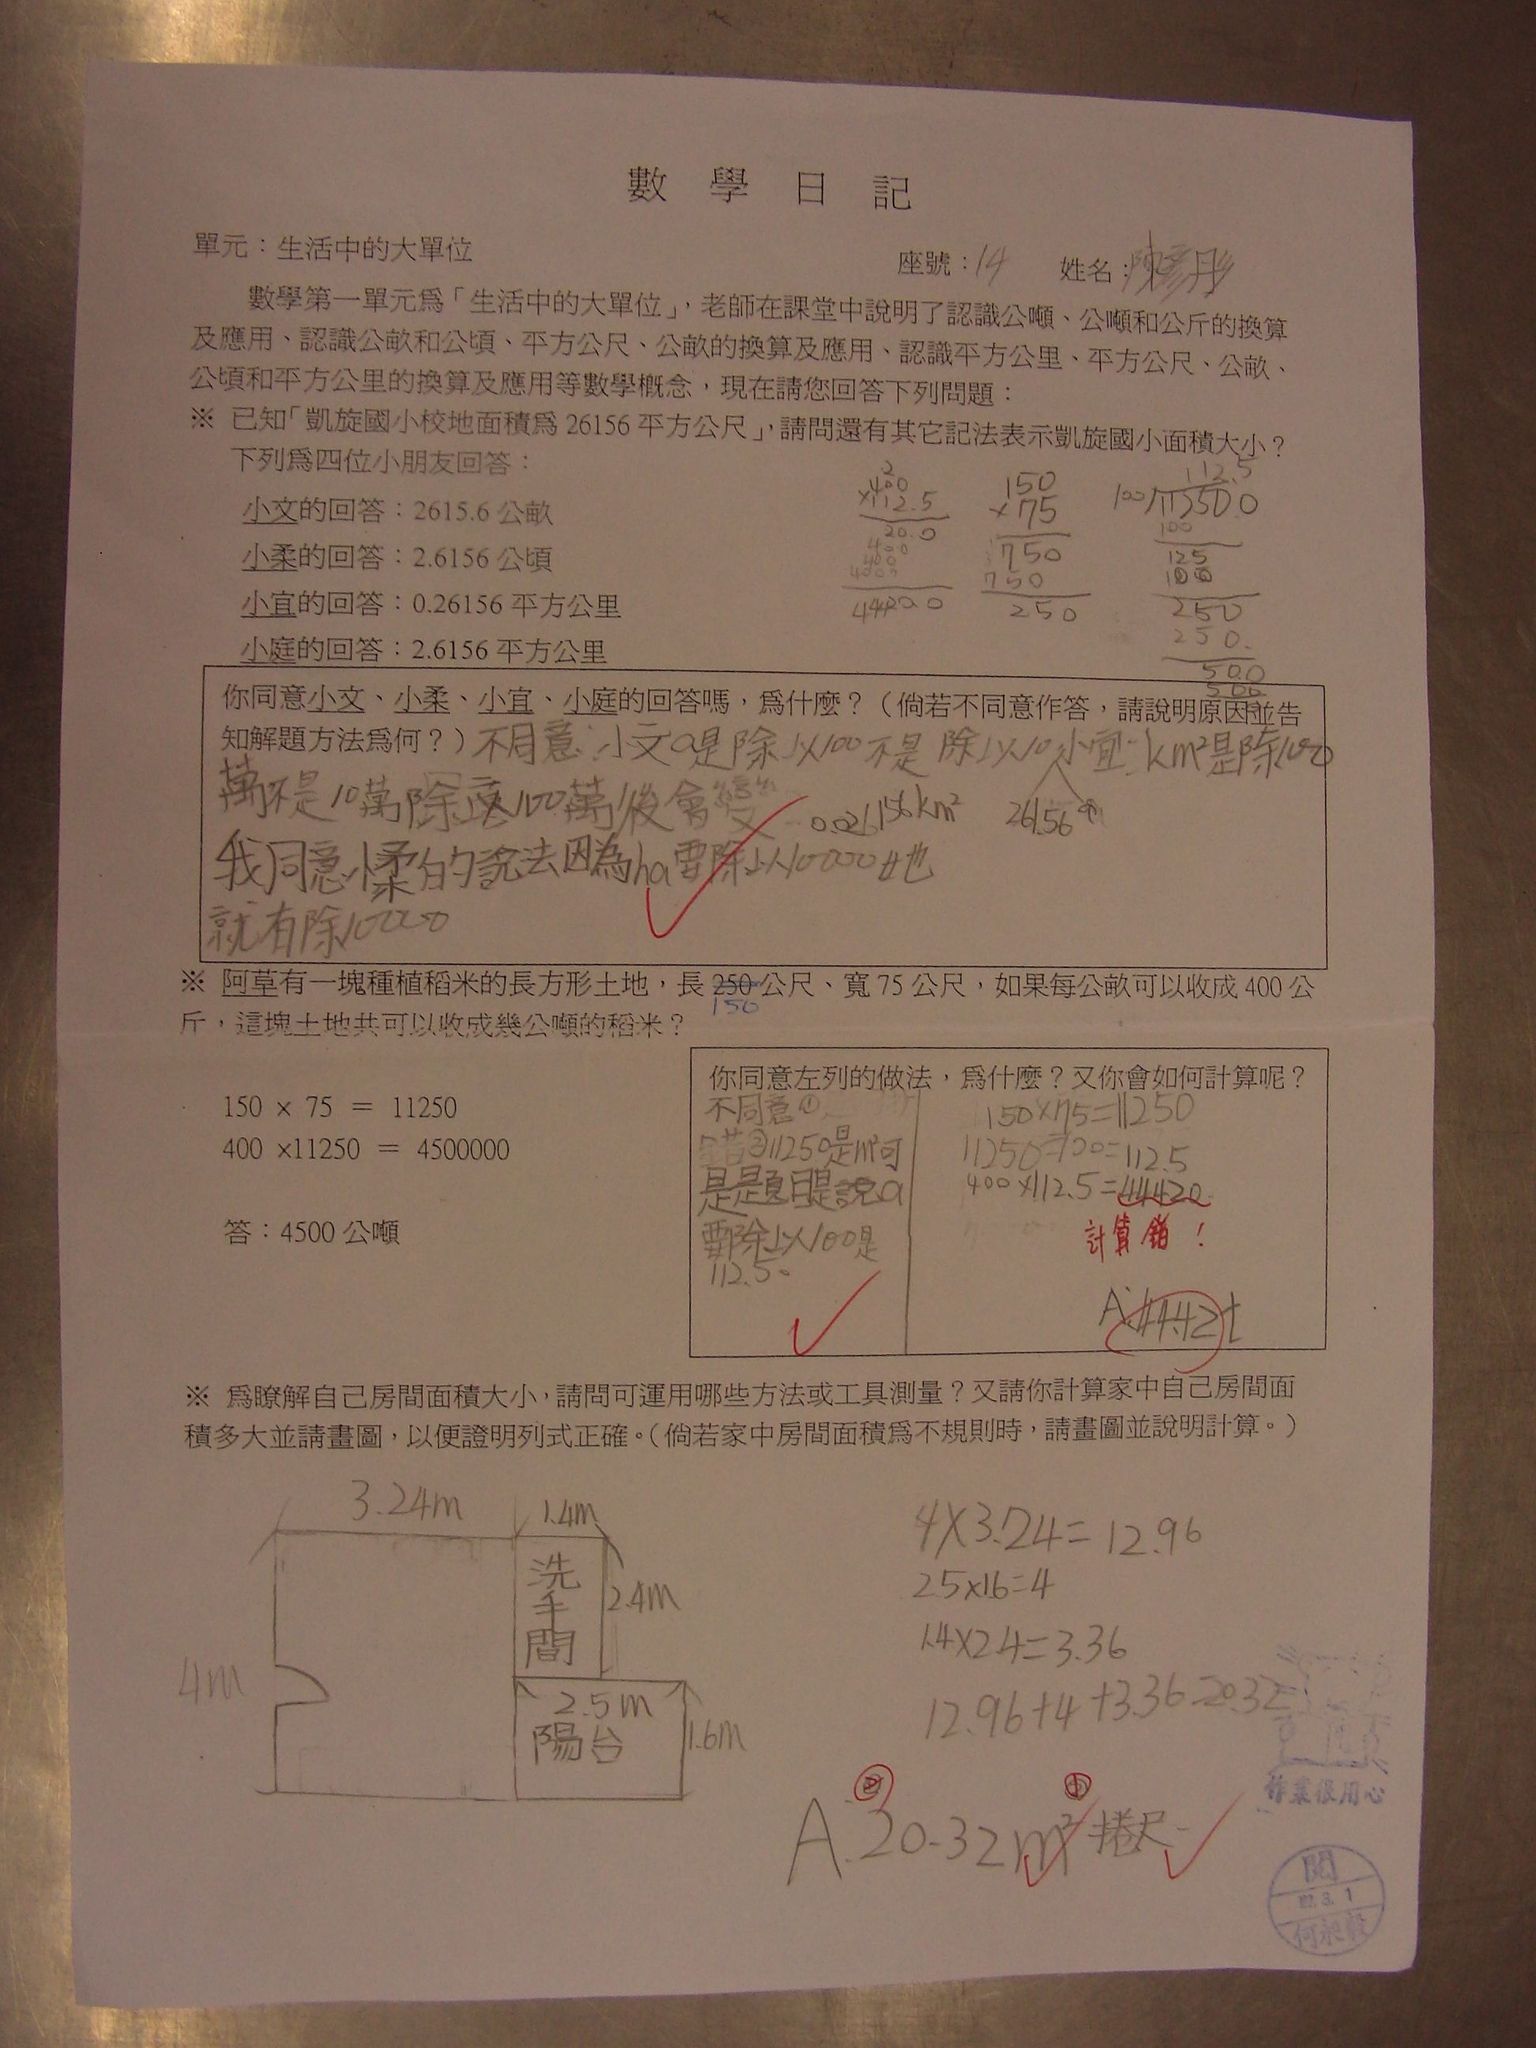 數學日記
單元：生活中的大單位
座號：14 姓名：陳彥彤
數學第一單元為「生活中的大單位」，老師在課堂中說明了認識公噸、公噸和公斤的換算
及應用、認識公畝和公頃、平方公尺、公畝的換算及應用、認識平方公里、平方公尺、公畝、
公頃和平方公里的換算及應用等數學概念，現在請您回答下列問題：
※ 已知「凱旋國小校地面積為 26156 平方公尺」，請問還有其它記法表示凱旋國小面積大小？
下列為四位小朋友回答：
小文的回答：2615.6 公畝
小柔的回答：2.6156 公頃
小宜的回答：0.26156 平方公里
小庭的回答：2.6156 平方公里
2
400
×112.5
20.0
400
400
400
44200
150
×75
750
750
250
112.5
100 11250.0
100
125
100
250
250.
500
500
你同意小文、小柔、小宜、小庭的回答嗎，為什麼？（倘若不同意作答，請說明原因並告
知解題方法為何？）不同意：小文a是除以100不是除以10小宜：km²是除100
萬不是10萬除以100萬後會變 0.026156km² 261.56
我同意小柔的說法因為ha要除以10000也
就有除10000
※ 阿草有一塊種植稻米的長方形土地，長 250 公尺、寬 75 公尺，如果每公畝可以收成 400 公
150
斤，這塊土地共可以收成幾公噸的稻米？
150 × 75 ＝ 11250
400 ×11250 ＝ 4500000
答：4500 公噸
你同意左列的做法，為什麼？又你會如何計算呢？
不同意①
錯②11250是m²可
是題目是說a
要除以100是
112.5。
150×75=11250
11250÷100=112.5
400×112.5=44420
計算錯！
A:44.42t
※ 為瞭解自己房間面積大小，請問可運用哪些方法或工具測量？又請你計算家中自己房間面
積多大並請畫圖，以便證明列式正確。（倘若家中房間面積為不規則時，請畫圖並說明計算。）
3.24m
1.4m
洗手間
2.4m
4m
2.5m
陽台
1.6m
4×3.24=12.96
2.5×1.6=4
1.4×2.4=3.36
12.96+4+3.36=20.32
② ①
A.20.32m² 捲尺
作業很用心
閱
3. 1